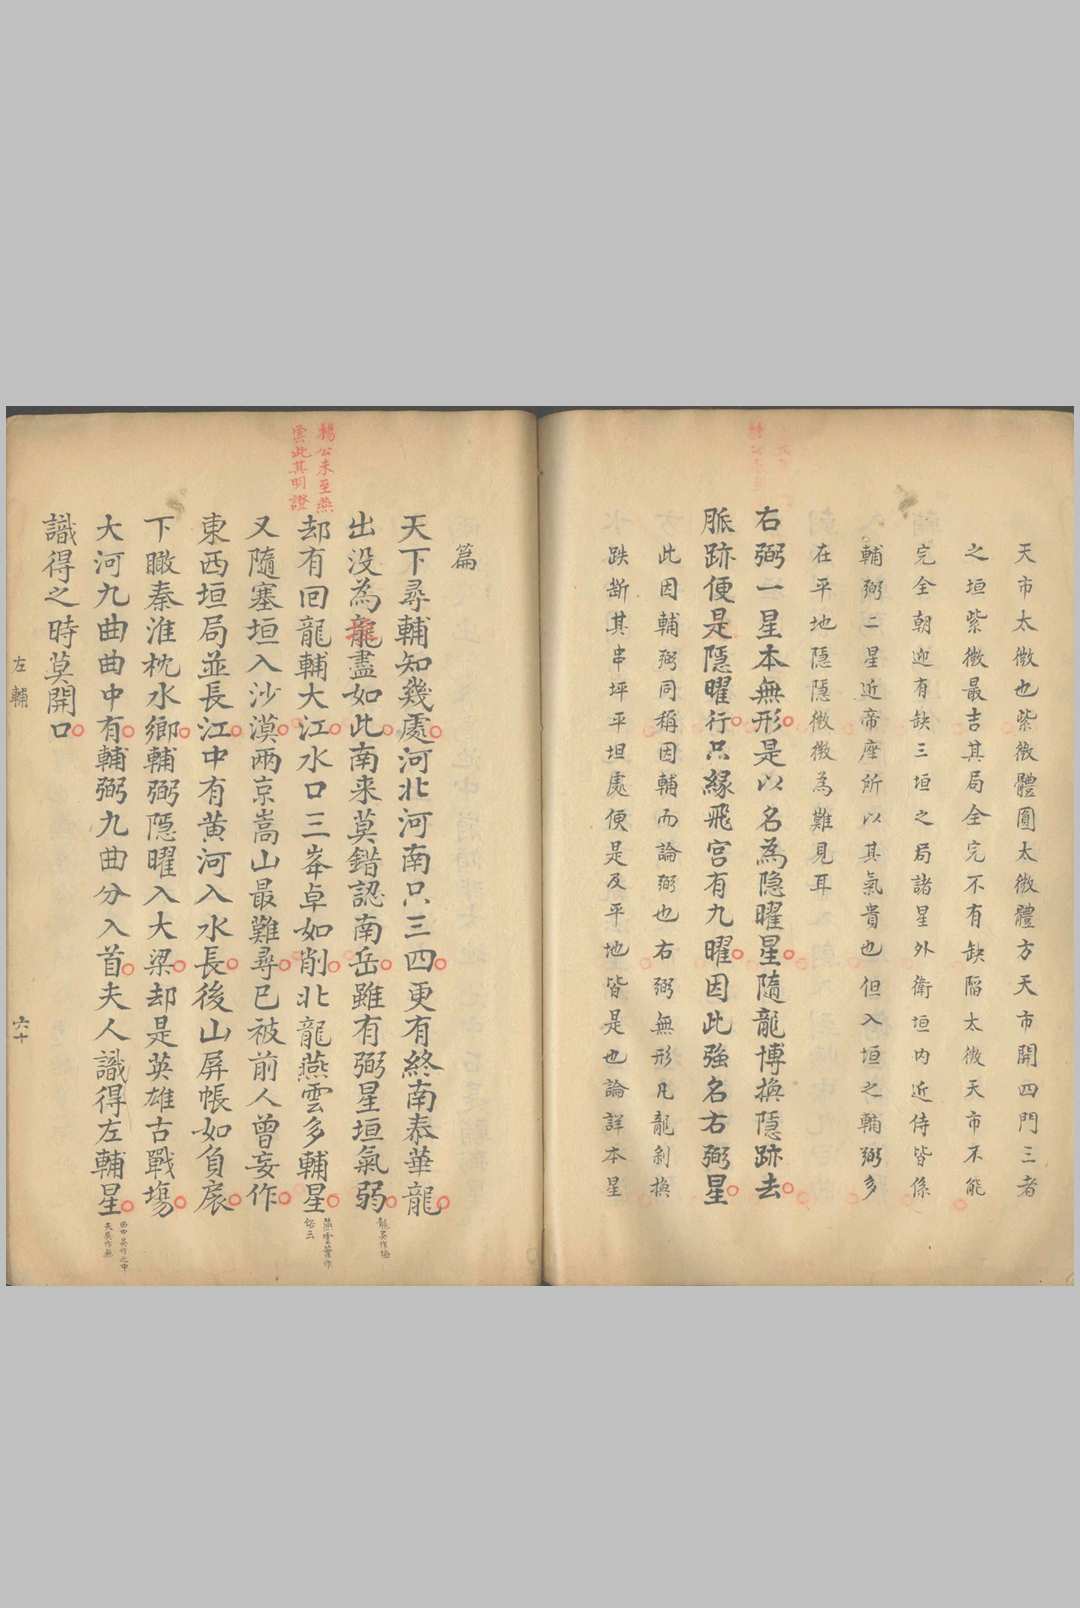 天市太微也紫微體圓太微體方天市開四門三者
之垣紫微最吉其局全完不有缺陷太微天市不能
完全朝迎有缺三垣之局諸星外衛垣内近侍皆係
輔弼二星近帝座所以其氣貴也但入垣之輔弼多
在平地隱隱微微為難見耳
右弼一星本無形是以名為隐曜星隨龍博換隱跡去
脈跡便是隱曜行只緣飛宫有九曜因此強名右弼星
此因輔弼同稱因輔而論弼也右弼無形凡龍剝換
跌斷其串坪平坦處便是及平地皆是也論詳本星
篇
天下尋輔知幾處河北河南只三四更有終南泰華龍
出没為龍盡如此南来莫錯認南岳雖有弼星垣氣弱
却有回龍輔大江水口三峯卓如削北龍燕雲多輔星
又隨塞垣入沙漠兩京嵩山最難尋已被前人曾妄作
東西垣局並長江中有黄河入水長後山屏帳如負扆
下瞰秦淮枕水鄉輔弼隱曜入大梁却是英雄古戰塲
大河九曲曲中有輔弼九曲分入首夫人識得左輔星
識得之時莫開口
楊公未至燕
雲此其明證
左輔
六十